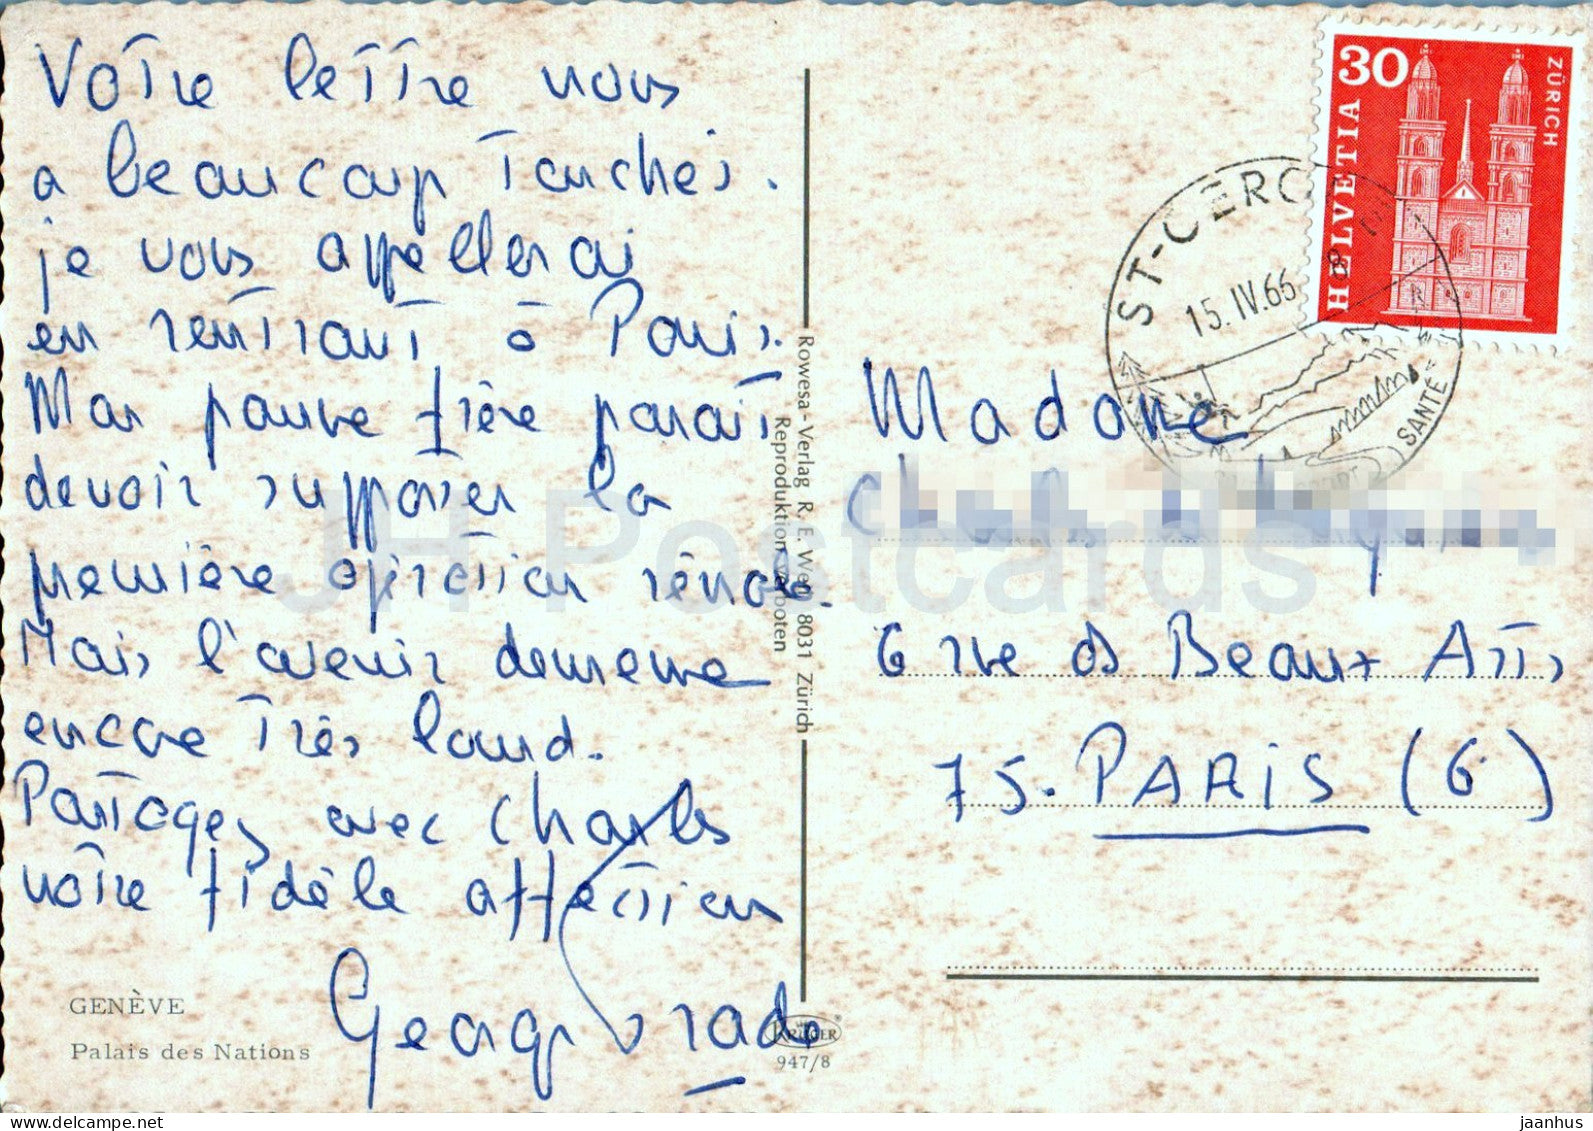 Votre lettre nous
a beaucoup touchés.
je vous appellerai
en rentrant à Paris.
Mon pauvre frère paraît
devoir supporter la
première opération rénale.
Mais l'avenir demeure
encore très lourd.
Partagez avec Charles
notre fidèle affection
Georges
GENÈVE
Palais des Nations
Rowesa - Verlag R. E. Weg, 8031 Zürich
Reproduktion verboten
KRÜGER
947/8
30
HELVETIA
ZÜRICH
ST-CERG
15.IV.66
SANTÉ
Madame
6 rue des Beaux Arts
75. PARIS (6)
JH Postcards
www.delcampe.net
jaanhus